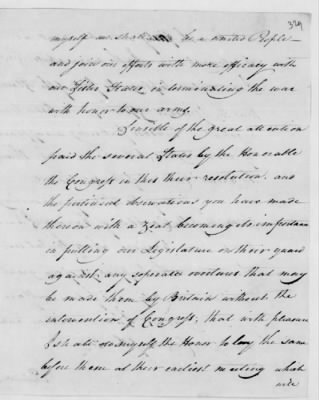 329
myself we shall be a united People
and join our efforts with more efficacy with
our Sister States in terminating the war
with honor to our arms.
Sensible of the great attention
paid the several States by the Honorable
the Congress in this their resolution, and
the pertinent observations you have made
thereon with a Zeal becoming its importance
in putting our Legislature on their guard
against any seperate overtures that may
be made them by Britain without the
intervention of Congress, that with pleasure
I shall do myself the Honor to lay the same
before them at their earliest meeting which
will